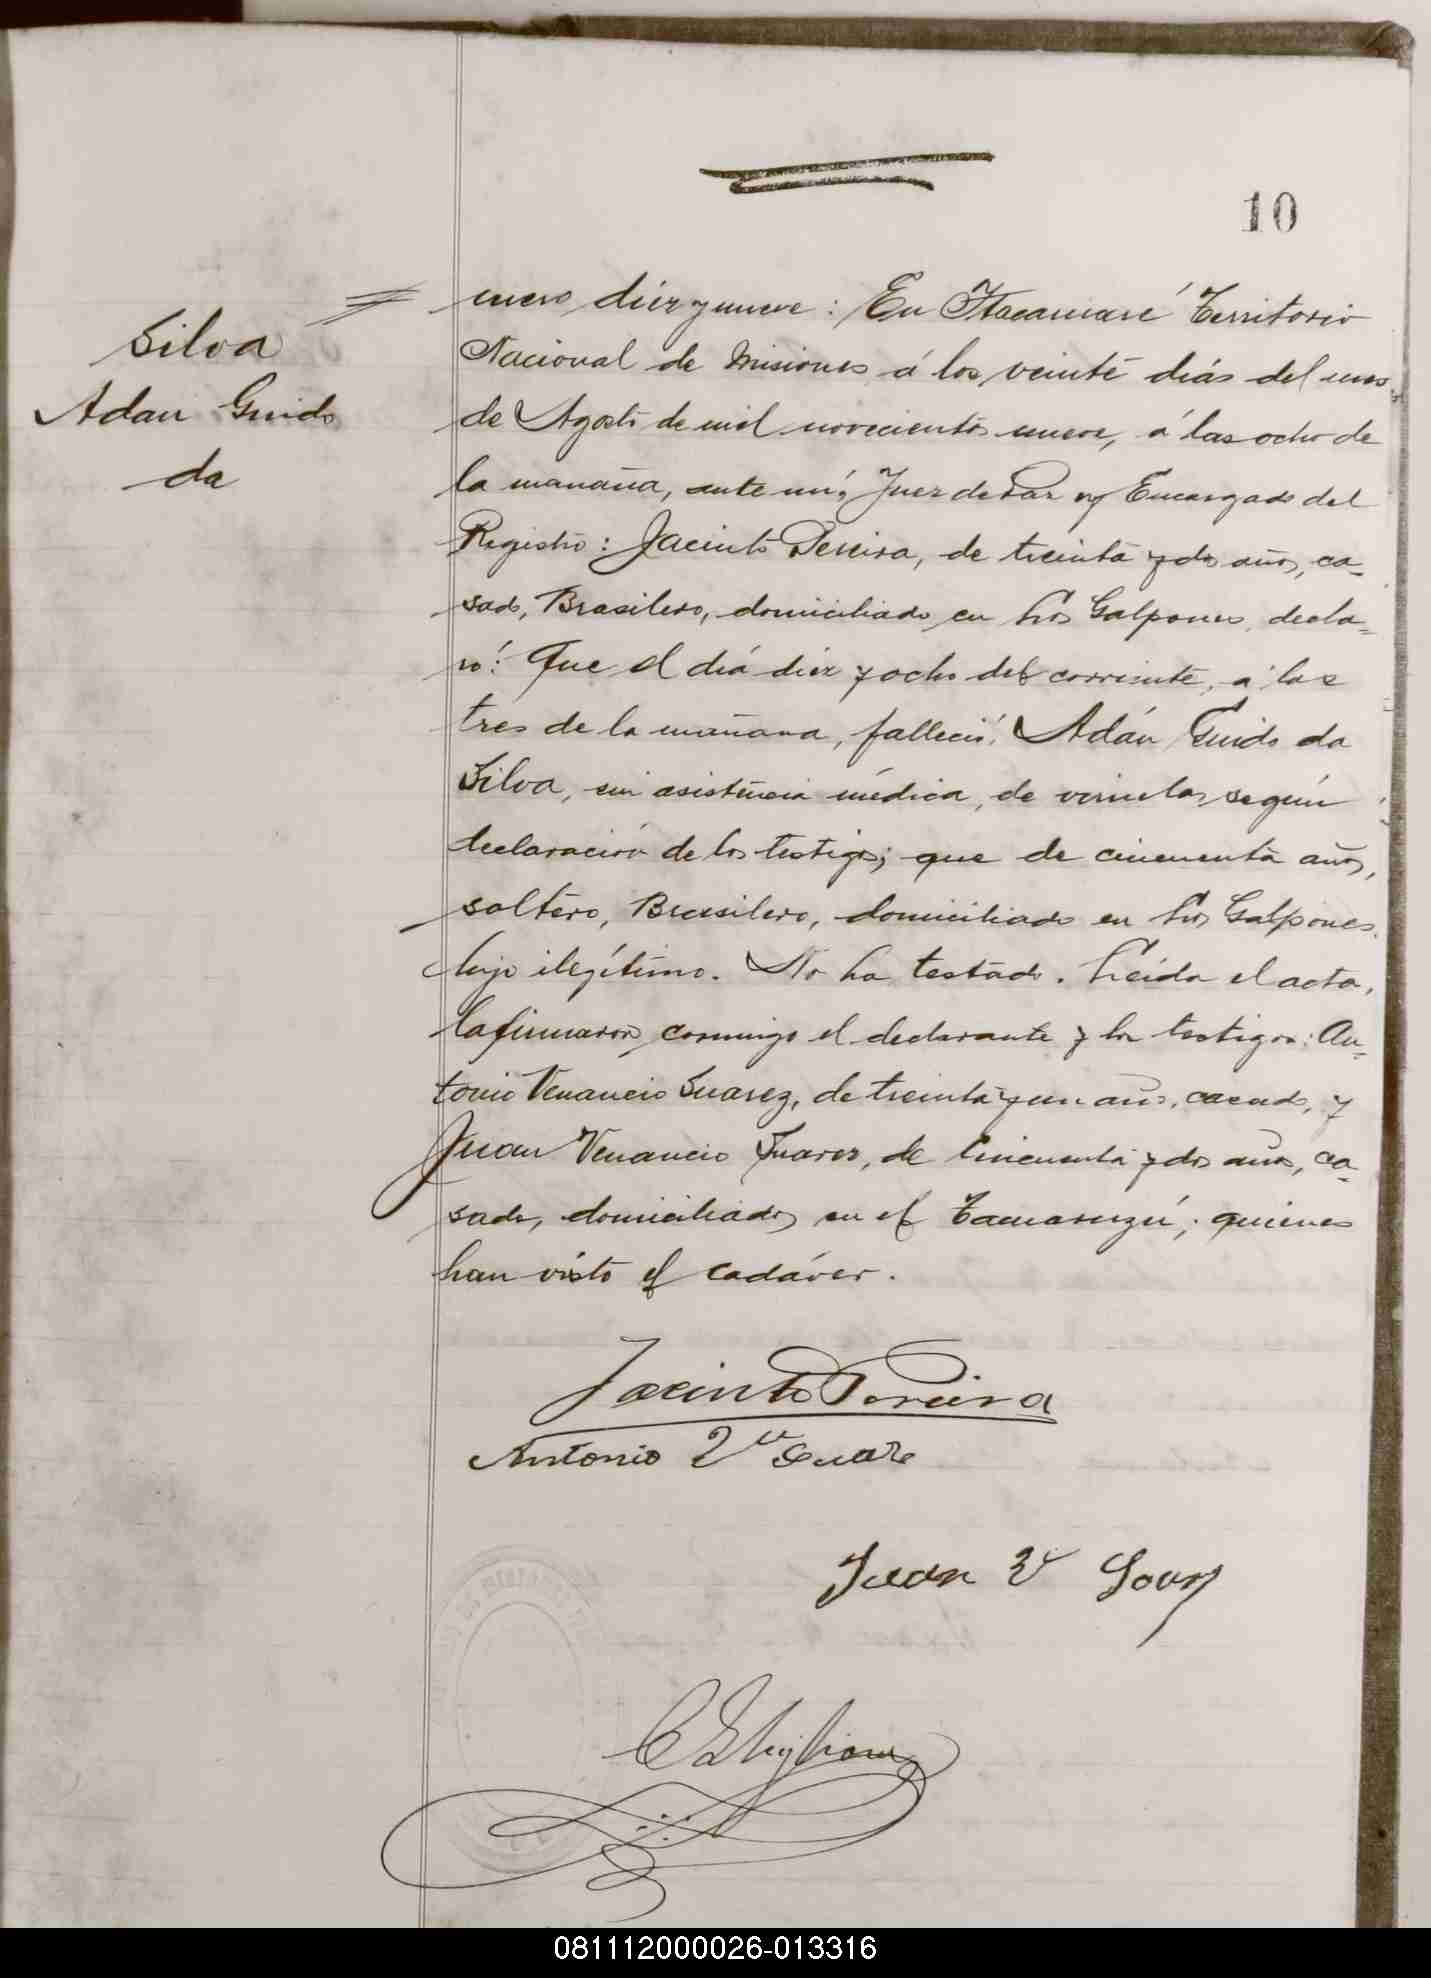 10
Silva
Adan Guido
da
mero diez y nueve: En Itacaruaré Territorio
Nacional de Misiones á los veinte dias del mes
de Agosto de mil novecientos nueve, á las ocho de
la mañana, ante mi, Juez de Paz y Encargado del
Registro: Jacinto Pereira, de treinta y dos años, ca-
sado, Brasilero, domiciliado en Los Galpones, decla-
ró: Que el dia diez y ocho del corriente, a las
tres de la mañana, falleció, Adán Guido da
Silva, sin asistencia médica, de viruelas, según
declaración de los testigos; que de cincuenta años,
soltero, Brasilero, domiciliado en Los Galpones.
hijo ilegítimo. No ha testado. Leida el acta,
la firmaron conmigo el declarante y los testigos: An-
tonio Venancio Suarez, de treinta y un años, casado, y
Juan Venancio Suarez, de cincuenta y dos años, ca-
sado, domiciliados en el ; quienes
han visto el cadáver.
Jacinto Pereira
Antonio Suare
Juan
081112000026-013316